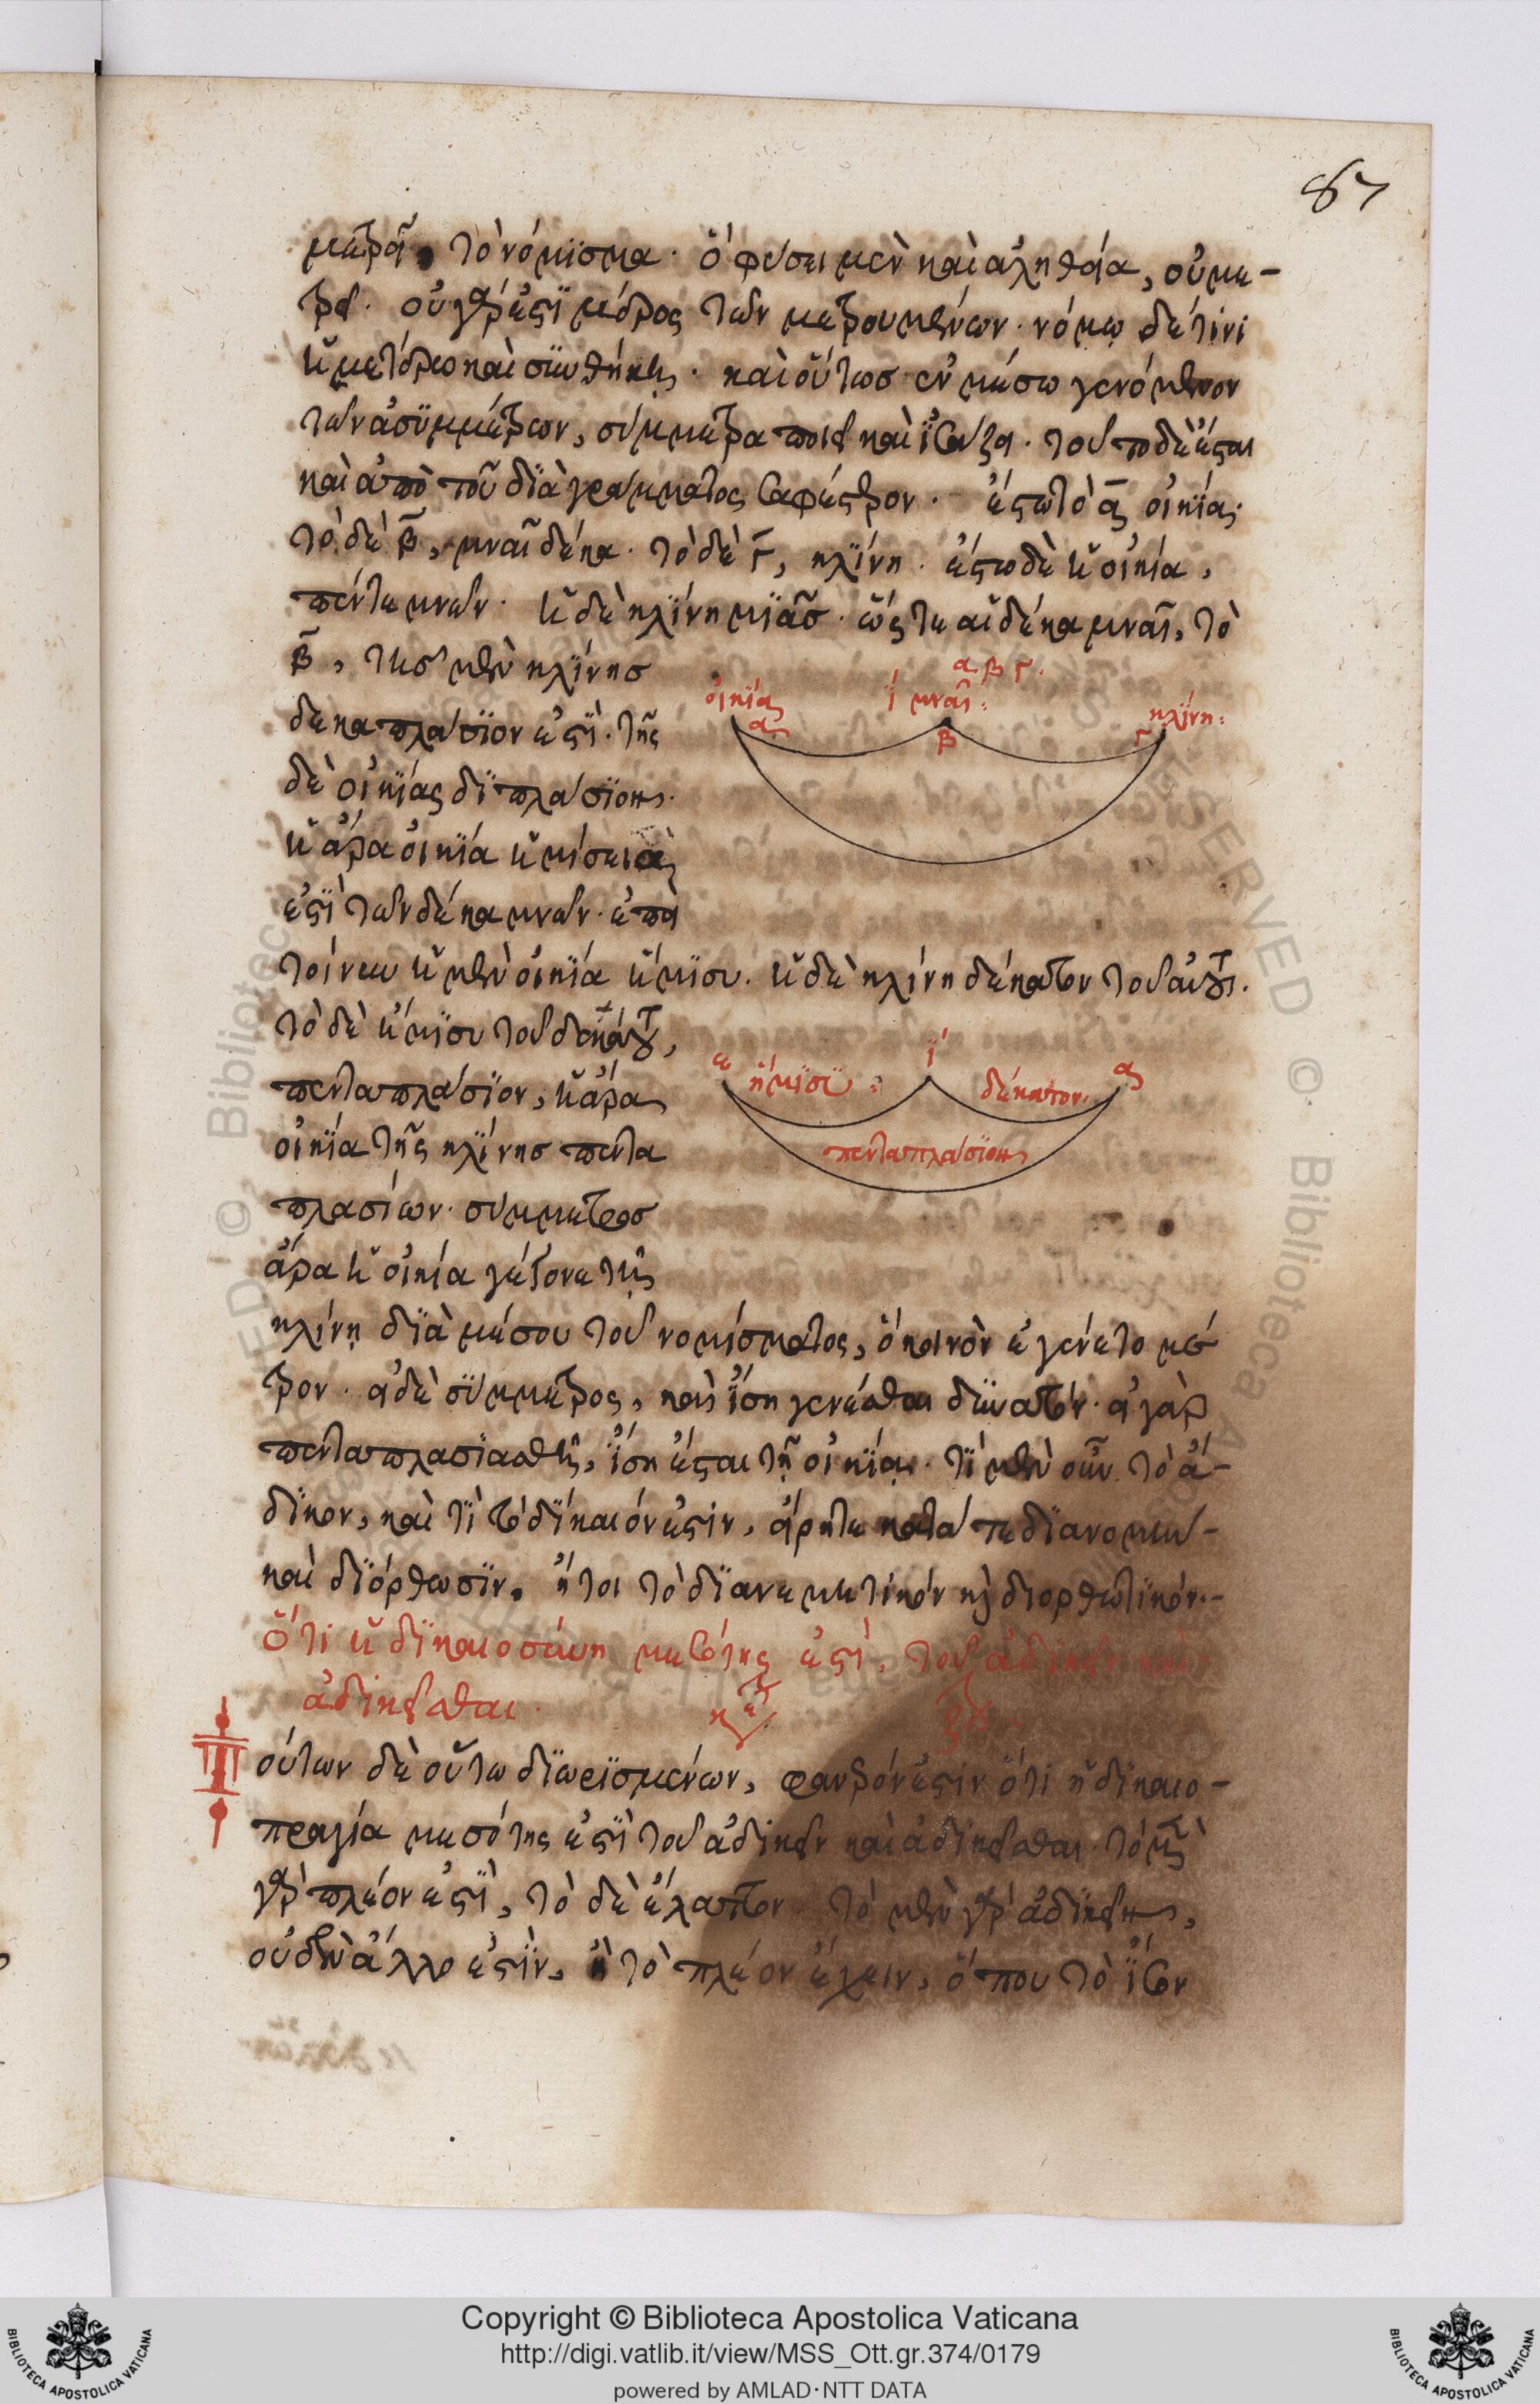 87
μετρεῖ, τὸ νόμισμα. ὃ φύσει μὲν καὶ ἀληθεία, οὐ με-
τρεῖ. οὐ γάρ ἐστι μέρος τῶν μετρουμένων. νόμω δέ τινι
καὶ συνθήκη. καὶ οὕτως ἐν μέσω γενόμενον
τῶν ἀσυμμέτρων, σύμμετρα ποιεῖ καὶ ἰσάζει. τοῦτο δὲ ἔσται
καὶ ἀπὸ τοῦ διαγράμματος σαφέστερον. ἔστω τὸ α οἰκία,
τὸ δὲ β, μναῖ δέκα. τὸ δὲ γ, κλίνη. ἔστω δὲ ἡ οἰκία,
πέντε μνῶν. ἡ δὲ κλίνη μιᾶς. ὥστε αἱ δέκα μναῖ, τὸ
β, τῆς μὲν κλίνης
α β γ.
οἰκία
ι μναῖ:
κλίνη:
α
β
γ
δεκαπλάσιόν ἐστι. τῆς
δὲ οἰκίας διπλάσιον.
ἡ ἄρα οἰκία ἡμίσεια
ἐστὶ τῶν δέκα μνῶν. ἐπεὶ
τοίνυν ἡ μὲν οἰκία ἥμισυ. ἡ δὲ κλίνη δέκατον τοῦ αὐτοῦ.
τὸ δὲ ἥμισυ τοῦ δεκάτου,
ε ἥμισυ:
ι
δέκατον.
α
πενταπλάσιον, ἡ ἄρα
οἰκία τῆς κλίνης πεντα
πενταπλάσιον
πλασίων. σύμμετρος
ἄρα ἡ οἰκία γέγονε τῆ
κλίνη διὰ μέσου τοῦ νομίσματος, ὃ κοινὸν ἐγένετο μέ
τρον. εἰ δὲ σύμμετρος, καὶ ἴση γενέσθαι δυνατόν. εἰ γὰρ
πενταπλασιασθῆ, ἴση ἔσται τῆ οἰκία. τί μὲν οὖν τὸ ἄ-
δικον, καὶ τί τὸ δίκαιόν ἐστιν, εἴρηται κατά τε διανομὴν
καὶ διόρθωσιν. ἤτοι τὸ διανεμητικόν καὶ διορθωτικόν.-
ὅτι ἡ δικαιοσύνη μεσότης ἐστὶ, τοῦ ἀδικεῖν καὶ
ἀδικεῖσθαι.
Τούτων δὲ οὕτω διωρισμένων, φανερόν ἐστιν ὅτι ἡ δικαιο-
πραγία μεσότης ἐστὶ τοῦ ἀδικεῖν καὶ ἀδικεῖσθαι. τὸ μὲν
γὰρ πλέον ἐστὶ, τὸ δὲ ἔλαττον. τὸ μὲν γὰρ ἀδικεῖν,
οὐδὲν ἄλλο ἐστὶν, ἢ τὸ πλέον ἔχειν, ὅπου τὸ ἴσον
Copyright © Biblioteca Apostolica Vaticana
http://digi.vatlib.it/view/MSS_Ott.gr.374/0179
powered by AMLAD·NTT DATA
BIBLIOTECA APOSTOLICA VATICANA
BIBLIOTECA APOSTOLICA VATICANA